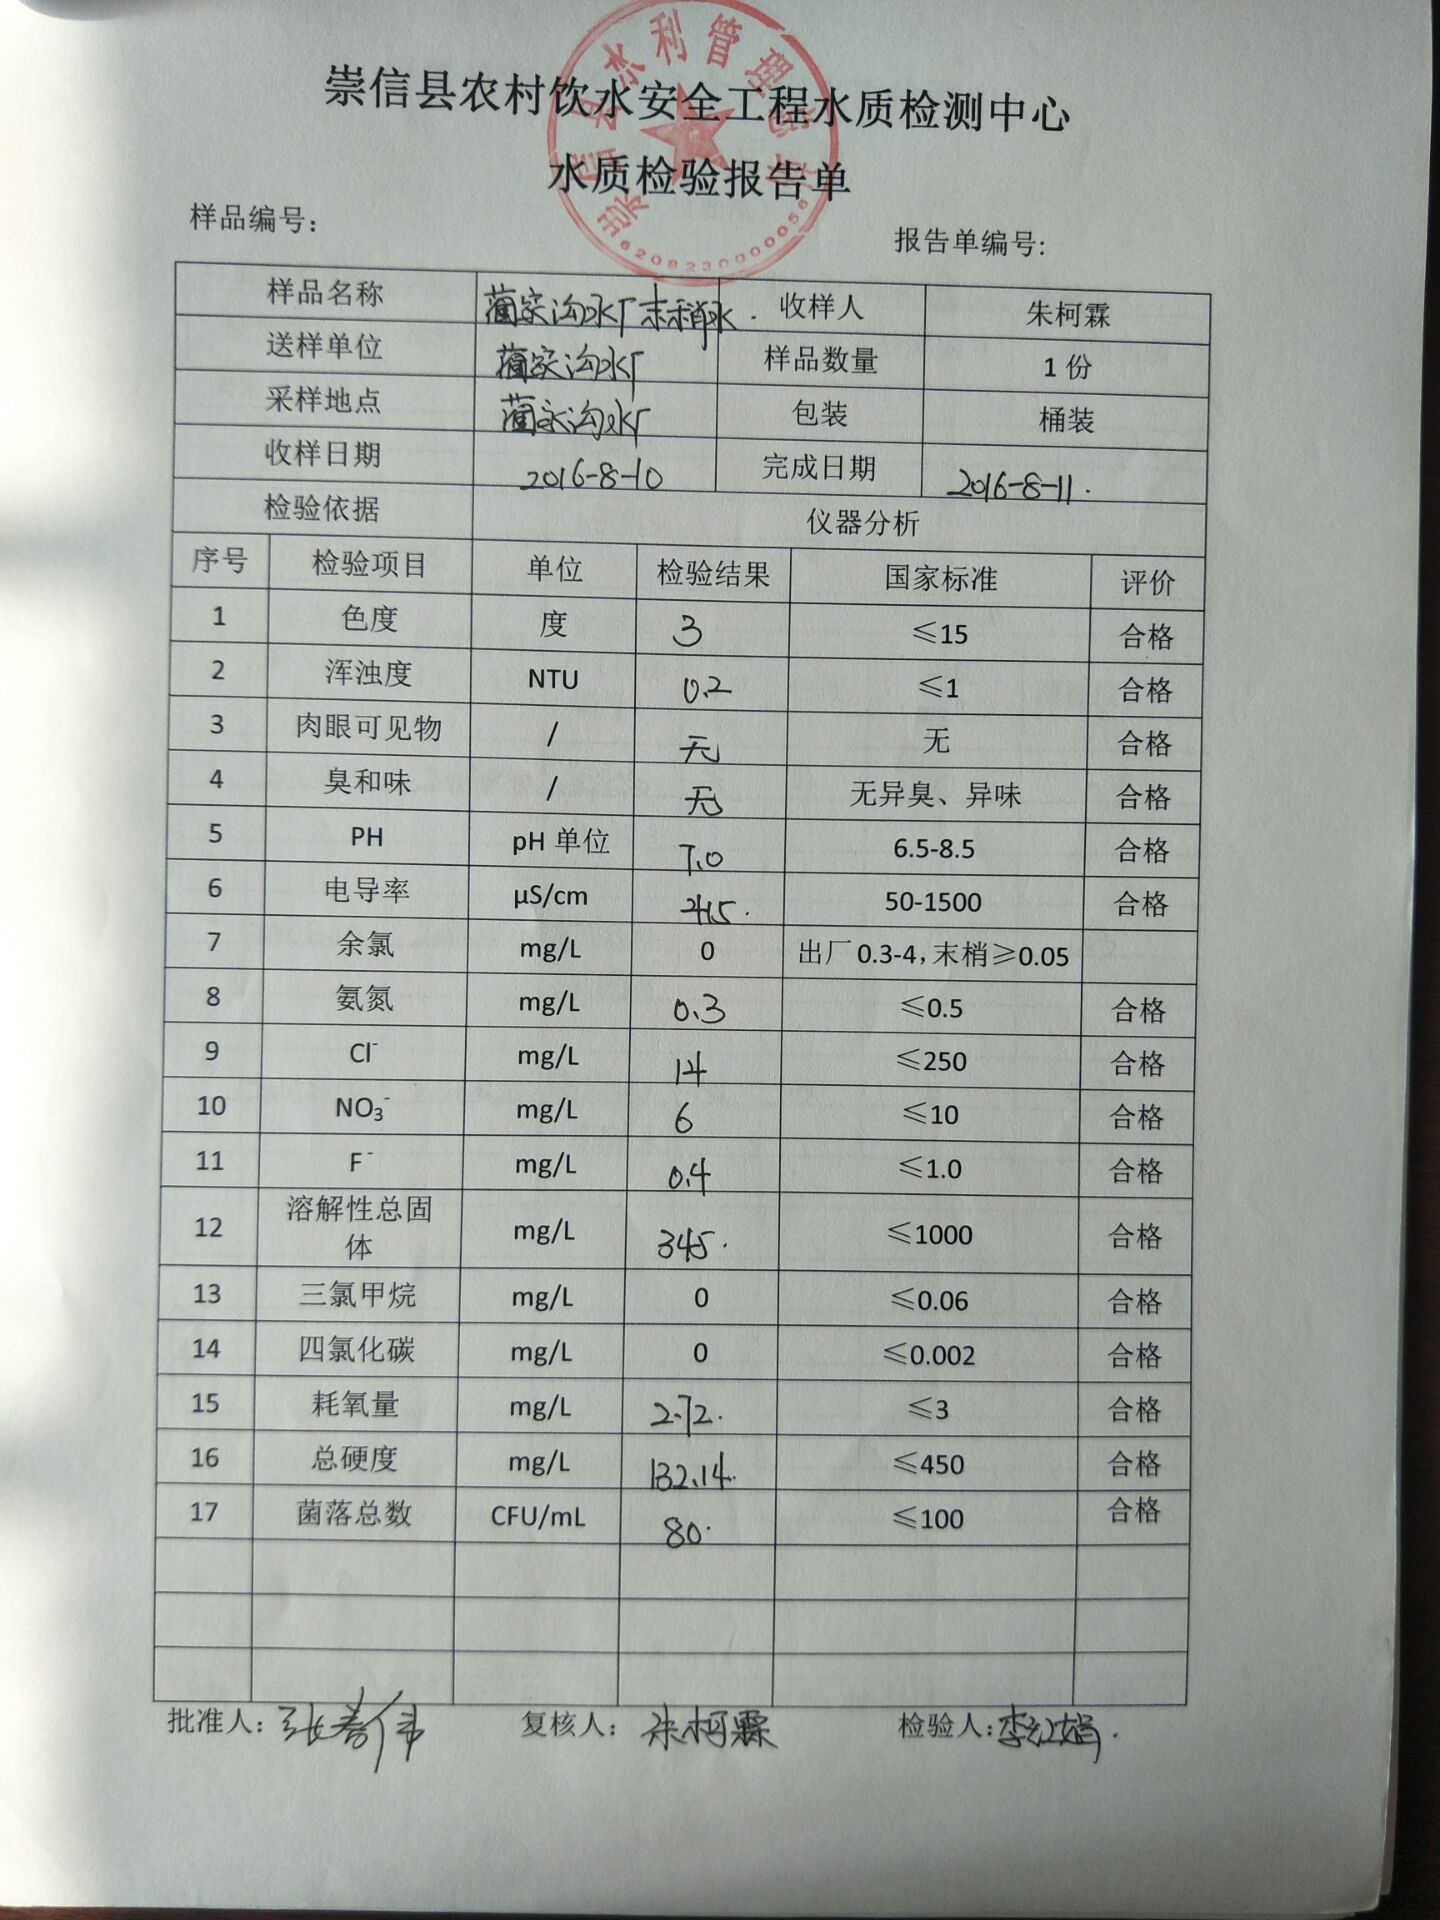 崇信县农村饮水安全工程水质检测中心
水质检验报告单
样品编号:
报告单编号:
样品名称 蔺家沟水厂末梢水. 收样人 朱柯霖
送样单位 蔺家沟水厂 样品数量 1份
采样地点 蔺家沟水厂 包装 桶装
收样日期 2016-8-10 完成日期 2016-8-11.
检验依据 仪器分析
序号 检验项目 单位 检验结果 国家标准 评价
1 色度 度 3 ≤15 合格
2 浑浊度 NTU 0.2 ≤1 合格
3 肉眼可见物 / 无 无 合格
4 臭和味 / 无 无异臭、异味 合格
5 PH pH 单位 7.0 6.5-8.5 合格
6 电导率 μS/cm 415. 50-1500 合格
7 余氯 mg/L 0 出厂 0.3-4,末梢≥0.05
8 氨氮 mg/L 0.3 ≤0.5 合格
9 Cl⁻ mg/L 14 ≤250 合格
10 NO₃⁻ mg/L 6 ≤10 合格
11 F⁻ mg/L 0.4 ≤1.0 合格
12 溶解性总固体 mg/L 345. ≤1000 合格
13 三氯甲烷 mg/L 0 ≤0.06 合格
14 四氯化碳 mg/L 0 ≤0.002 合格
15 耗氧量 mg/L 2.72. ≤3 合格
16 总硬度 mg/L 132.14. ≤450 合格
17 菌落总数 CFU/mL 80. ≤100 合格
批准人: 复核人: 朱柯霖 检验人: 李红娟.